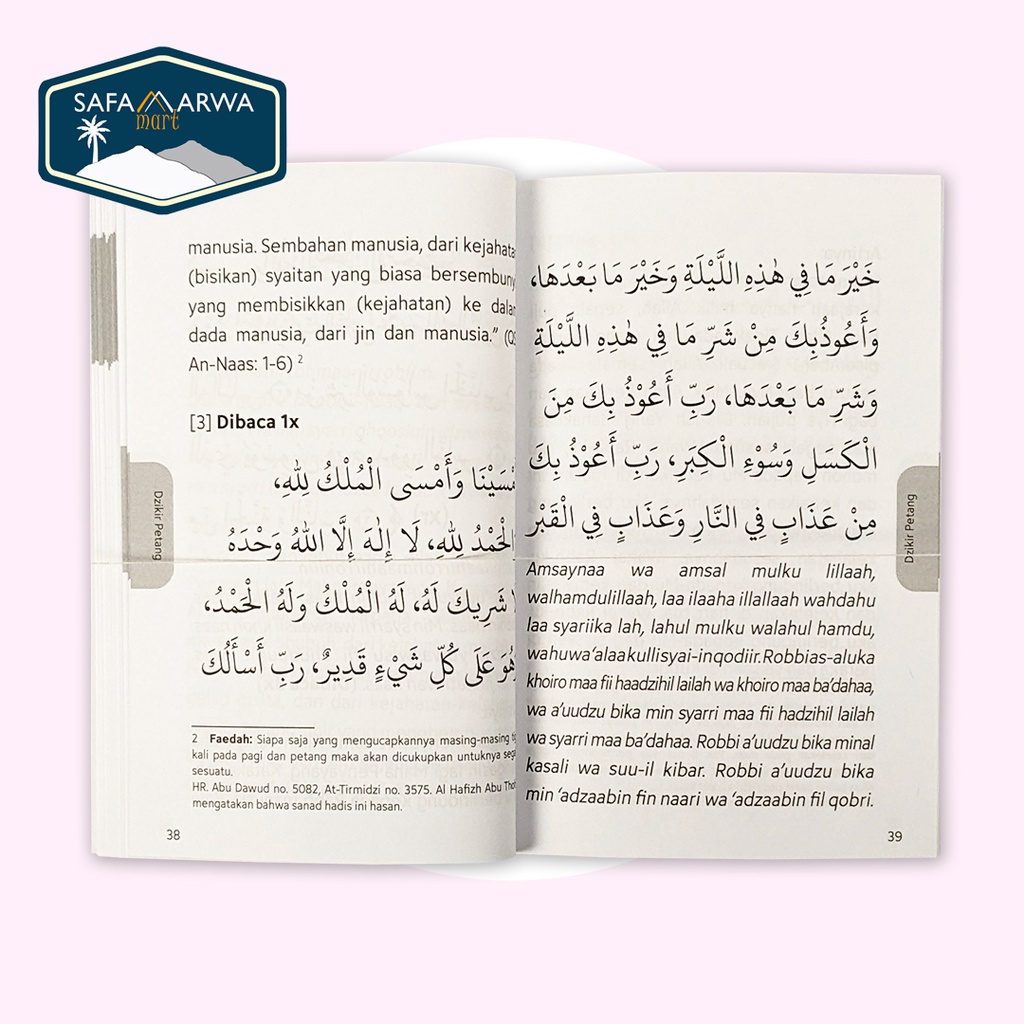 SAFA MARWA
mart
manusia. Sembahan manusia, dari
(bisikan) syaitan yang biasa
yang membisikkan (kejahatan) ke
dada manusia, dari jin dan manusia.”
An-Naas: 1-6) 2
[3] Dibaca 1x
وَأَمْسَى الْمُلْكُ لِلّٰهِ،
لِلّٰهِ، لَا إِلٰهَ إِلَّا اللّٰهُ وَحْدَهُ
شَرِيكَ لَهُ، لَهُ الْمُلْكُ وَلَهُ الْحَمْدُ،
عَلَى كُلِّ شَيْءٍ قَدِيرٌ، رَبِّ أَسْأَلُكَ
2 Faedah: Siapa saja yang mengucapkannya masing-masing
kali pada pagi dan petang maka akan dicukupkan untuknya
sesuatu.
HR. Abu Dawud no. 5082, At-Tirmidzi no. 3575. Al Hafizh Abu
mengatakan bahwa sanad hadis ini hasan.
38
Dzikir Petang
خَيْرَ مَا فِي هٰذِهِ اللَّيْلَةِ وَخَيْرَ مَا بَعْدَهَا،
وَأَعُوذُبِكَ مِنْ شَرِّ مَا فِي هٰذِهِ اللَّيْلَةِ
وَشَرِّ مَا بَعْدَهَا، رَبِّ أَعُوْذُ بِكَ مِنَ
الْكَسَلِ وَسُوْءِ الْكِبَرِ، رَبِّ أَعُوْذُ بِكَ
مِنْ عَذَابٍ فِي النَّارِ وَعَذَابٍ فِي الْقَبْرِ
Amsaynaa wa amsal mulku lillaah,
walhamdulillaah, laa ilaaha illallaah wahdahu
laa syariika lah, lahul mulku walahul hamdu,
wahuwa ‘alaa kulli syai-in qodiir. Robbi as-aluka
khoiro maa fii haadzihil lailah wa khoiro maa ba’dahaa,
wa a’uudzu bika min syarri maa fii hadzihil lailah
wa syarri maa ba’dahaa. Robbi a’uudzu bika minal
kasali wa suu-il kibar. Robbi a’uudzu bika
min ‘adzaabin fin naari wa ‘adzaabin fil qobri.
39
Dzikir Petang